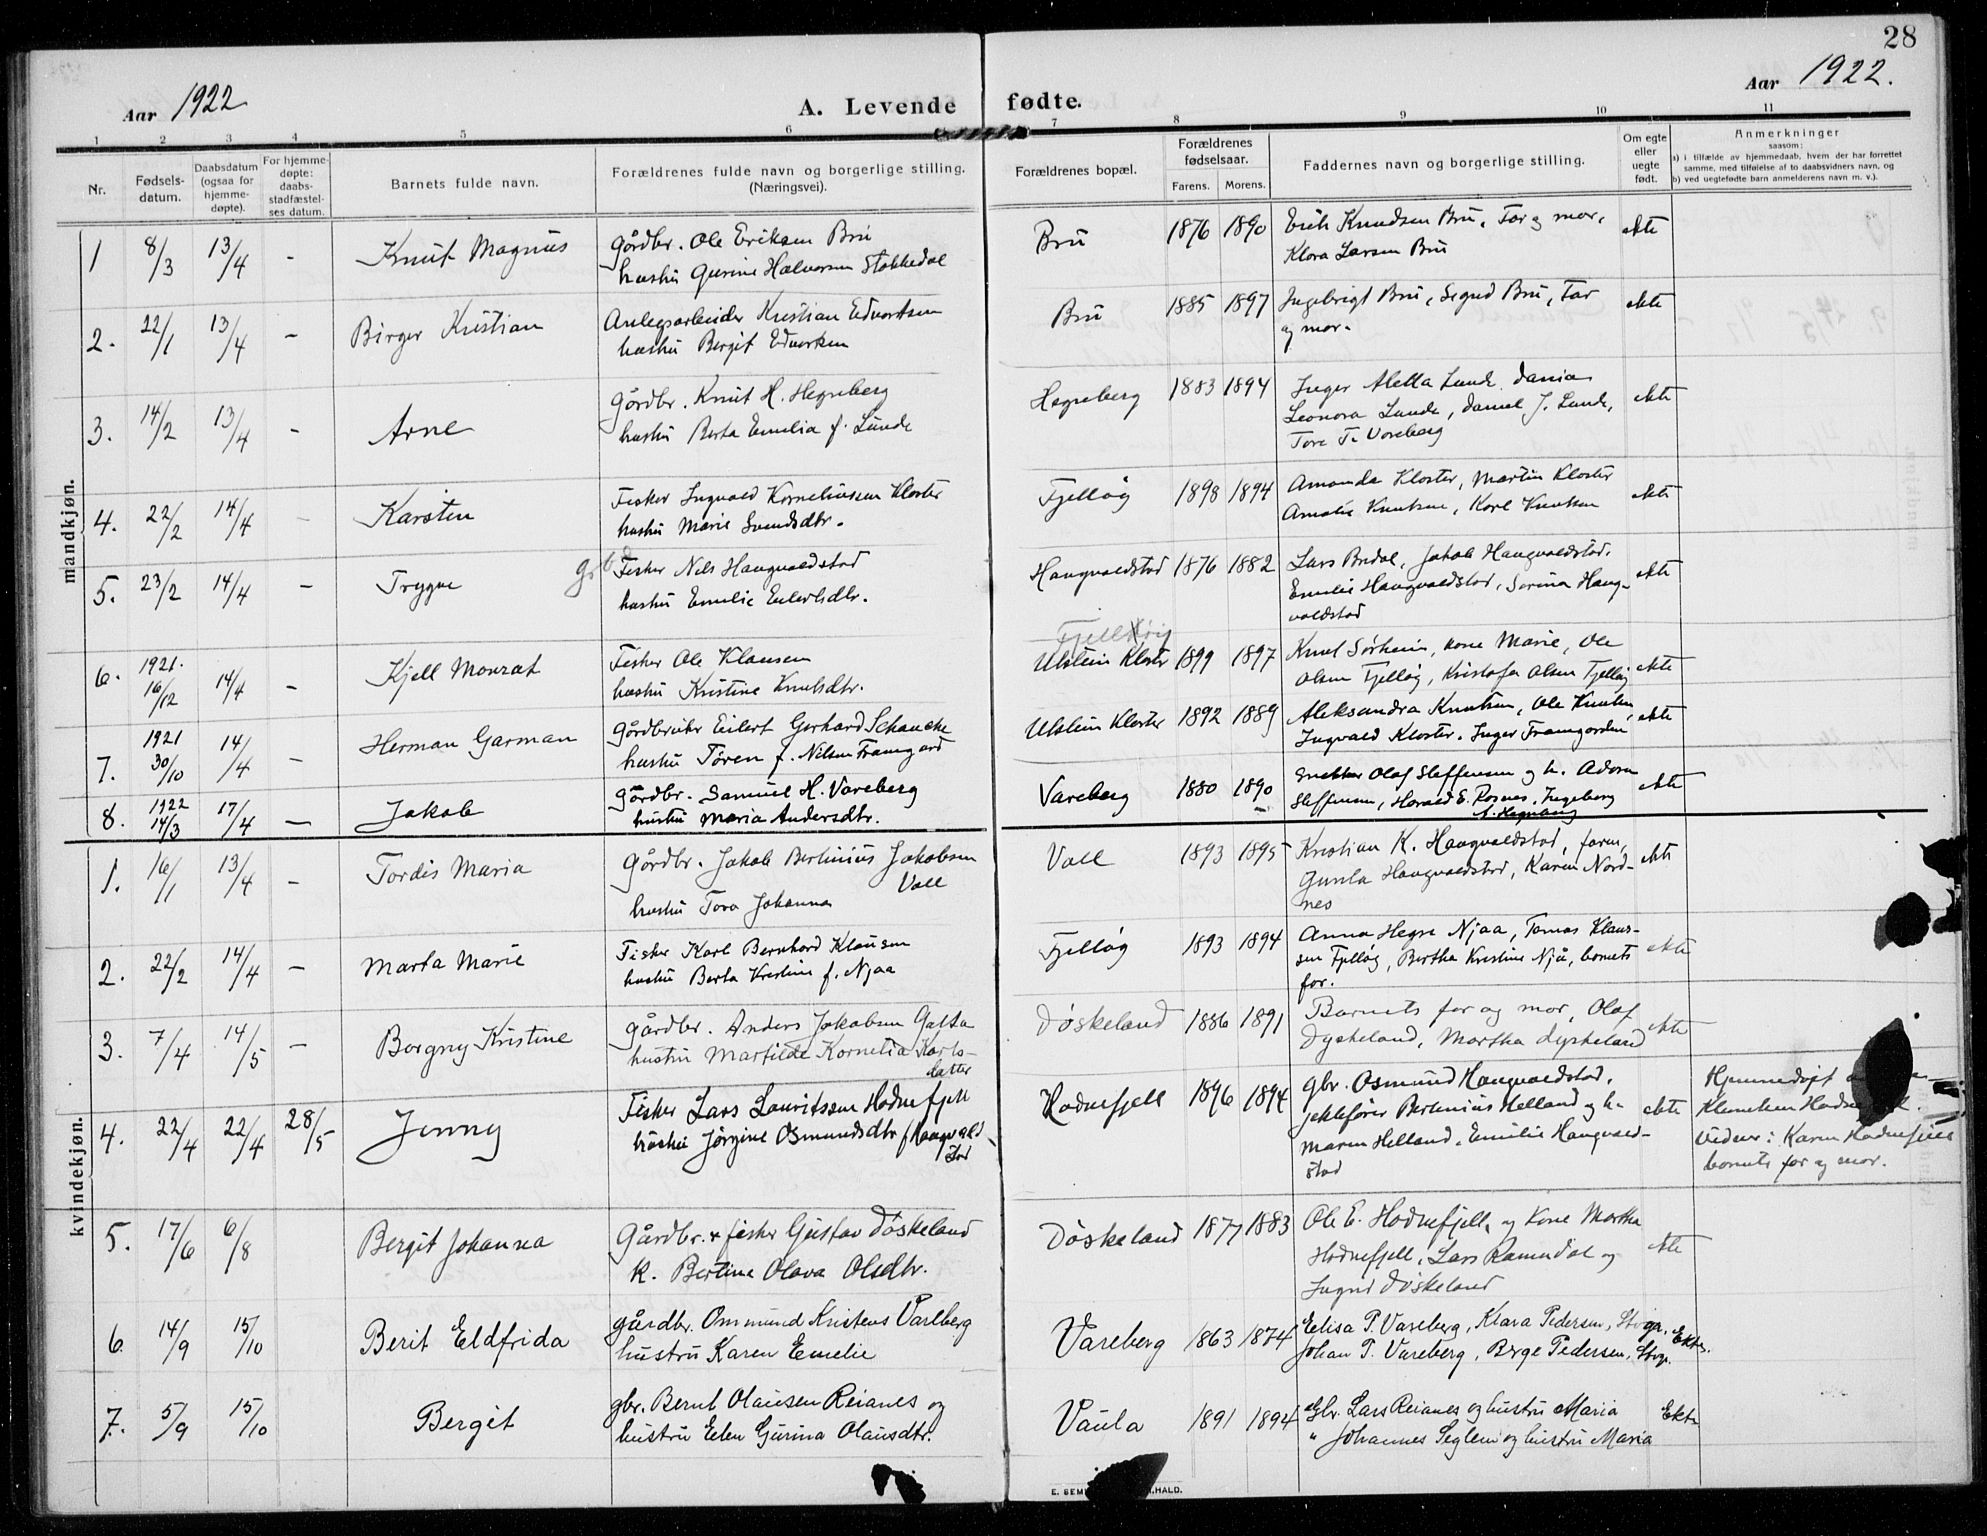 28
Aar 1922
A. Levende fødte.
Aar 1922.
1 2 3 4 5 6 7 8 9 10 11
Nr.
Fødsels-
datum.
Daabsdatum
(ogsaa for
hjemme-
døpte).
For hjemme-
døpte:
daabs-
stadfæstel-
ses datum.
Barnets fulde navn.
Forældrenes fulde navn og borgerlige stilling.
(Næringsvei).
Forældrenes bopæl.
Forældrenes
fødselsaar.
Farens. Morens.
Faddernes navn og borgerlige stilling.
Om egte
eller
uegte
født.
Anmerkninger
saasom:
a) i tilfælde av hjemmedaab, hvem der har forrettet
samme, med tilføielse af to daabsvidners navn, og
b) ved uegtefødte barn anmelderens navn m. v.).
mandkjøn.
1 8/3 13/4 - Knut Magnus Gårdbr. Ole Eriksen Bru Bru 1876 1890 Erik Knudsen Bru, Far og mor, ekte
hustru Gurine Halvorsen Stokkedal Klara Larsen Bru
2. 22/1 13/4 - Birger Kristian Anlegsarbeider Kristian Edvartsen Bru 1885 1897 Ingebrigt Bru, Sigrid Bru, Far ekte
hustru Bergit Edvartsen og mor.
3. 14/2 13/4 - Arne Gårdbr. Knut H. Hegreberg Hegreberg 1883 1894 Inger Aletta Lunde, Dania ekte
hustru Berta Emilia f. Lunde Leonora Lunde, Daniel J. Lunde,
Tore T. Vareberg
4. 22/2 14/4 - Karsten Fisker Ingvald Korneliussen Kloster Fjelløg 1898 1894 Amanda Kloster, Martin Kloster ekte
hustru Marie Svendsdtr. Amalie Knutsen, Karl Knutsen
5. 23/2 14/4 - Trygve Fisker Nils Haugvaldstad Haugvaldstad 1876 1882 Lars Bredal, Jakob Haugvaldstad, ekte
hustru Emilie Eilertsdtr. Emilie Haugvaldstad, Serina Haug-
valdstad
6. 1921. 16/12 14/4 - Kjell Monrat Fisker Ole Klausen Fjelløig Utstein Kloster 1899 1897 Knut Sørheim, kone Marie, Ole ekte
hustru Kristine Knutsdtr. Olsen Fjelløg, Kristofa Olsen Fjelløg
7. 1921 30/10 14/4 - Herman Garman Gårdbruker Eilert Gerhard Schancke Utstein Kloster 1892 1889 Aleksandra Knutsen, Ole Knutsen, ekte
hustru Tøren f. Nilsen Framgard Ingvald Kloster, Inger Framgarden
8. 1922 14/3 17/4 - Jakob Gårdbr. Samuel H. Vareberg Vareberg 1880 1890 Snekker Olaf Steffensen og h. Adora ekte
hustru Maria Andersdtr. Steffensen, Harald E. Rosnes, Ingeborg
kvindekjøn.
1. 16/1 13/4 - Tordis Maria Gårdbr. Jakob Bertinius Jakobsen Voll Voll 1893 1895 Kristian K. Haugvaldstad, faren, ekte
hustru Tora Johanna Gunla Haugvaldstad, Karen Nord-
nes
2. 22/2 14/4 - Marta Marie Fisker Karl Bernhard Klausen Fjelløg 1893 1894 Anna Hegre Njaa, Tomas Klaus- ekte
hustru Berta Kristine f. Njaa sen Fjelløg, Bertha Kristine Njå, barnets
far.
3. 7/4 14/5 - Borgny Kristine Gårdbr. Anders Jakobsen Galta Døskeland 1886 1891 Barnets far og mor, Olaf ekte
hustru Martilde Kornelia Karls- Dyskeland, Martha Dyskeland
datter
4. 22/4 22/4 28/5 Jenny Fisker Lars Lauritssen Hodnefjell Hodnefjell 1896 1894 gbr. Osmund Haugvaldstad, ekte Hjemmedøpt
hustru Jørgine Osmundsdtr f. Haugvaldstad jektefører Bertinius Helland og h. Klemetsen
Maren Helland, Emilie Haugvald- Vidner: Karen Hodnefjell
stad barnets far og mor.
5. 17/6 6/8 Bergit Johanna Gårdbr. + fisker Gustav Døskeland Døskeland 1877 1883 Ole E. Hodnefjell og kone Martha ekte
k. Bertine Olava Olsdtr. Hodnefjell, Lars Ramsdal og
Ingrid Døskeland
6. 14/9 15/10 Berit Eldfrida gårdbr. Ommund Kristens Vareberg Vareberg 1863 1874 Elisa T. Vareberg, Klara Pedersen, Stvgr. Ekte.
hustru Karen Emelie Johan T. Vareberg, Berge Pedersen, Stvgr.
7. 5/9 15/10 Bergit gbr. Bernt Olausen Reianes og Vaula 1891 1894 Gbr. Lars Reianes og hustru Maria Ekte
hustru Elen Gurina Olausdtr. " Johannes Seglem og hustru Maria